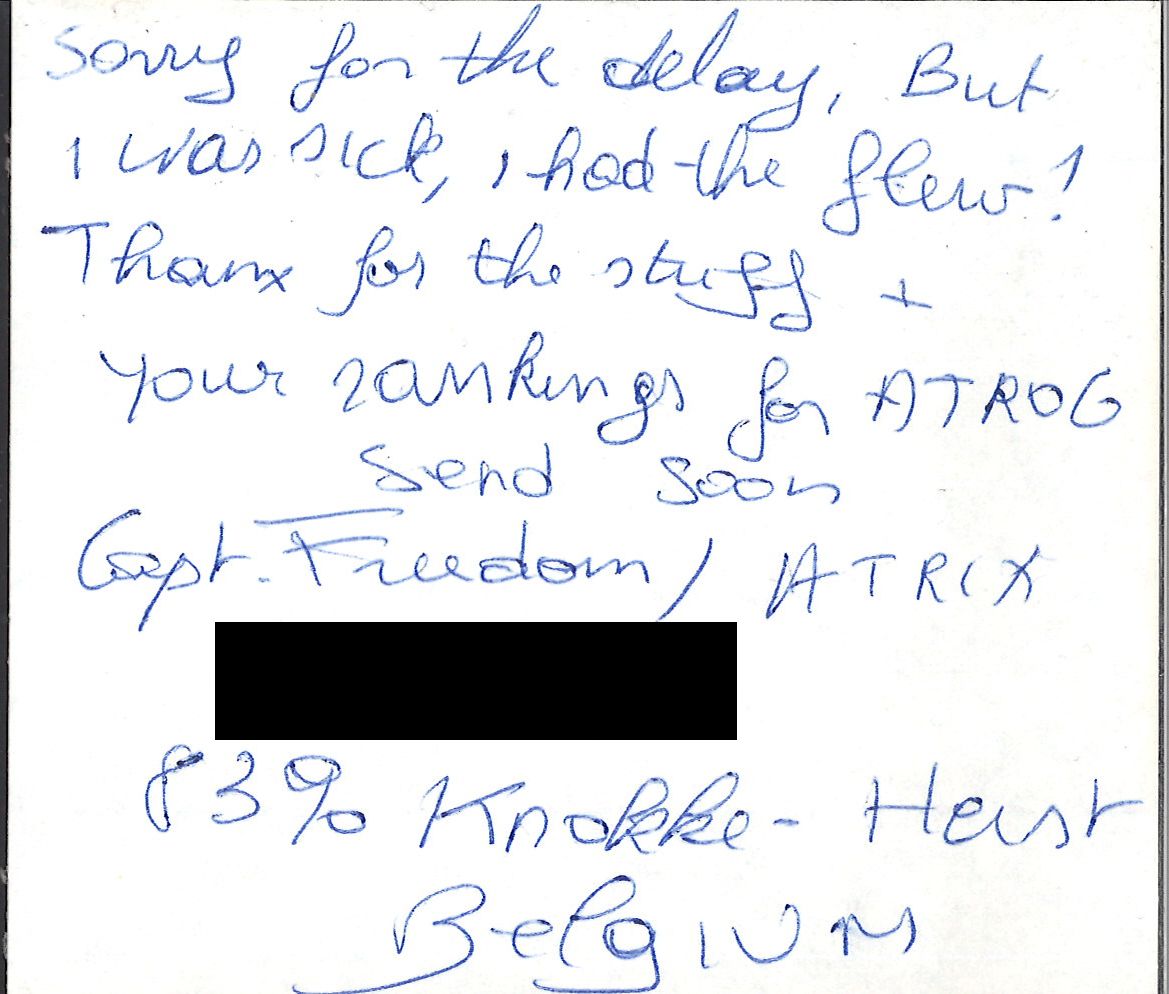 Sorry for the delay, But
i was sick, i had the flew!
Thanx for the stuff +
your rankings for ATROG
Send soon
Capt. Freedom / ATRIX
83% Knokke-Heist
Belgium